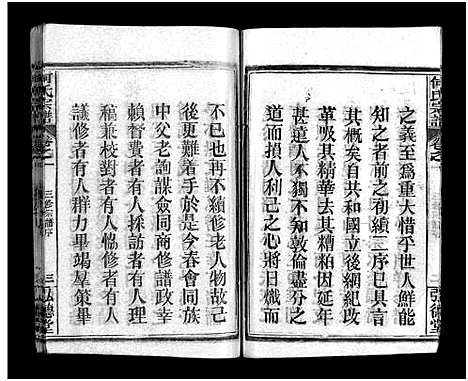 何氏宗譜
卷之一
三修宗譜序
二
弘德堂
之義至爲重大惜乎世人鮮能
知之者前之初續二序已具言
其概矣自共和國立後綱紀改
革吸其精華去其糟粕因延年
甚遠人不獨不知敦倫盡分之
道而損人利己之心將日熾而
不已也再不續修老人物故已
後更難着手於是今春會同族
中諸老詢謀僉同商修譜政幸
賴督費者有人採訪者有人修
稿兼校對者有人協修者有人
議修者有人群力畢竭羣策畢
何氏宗譜
卷之一
三修宗譜序
三
弘德堂